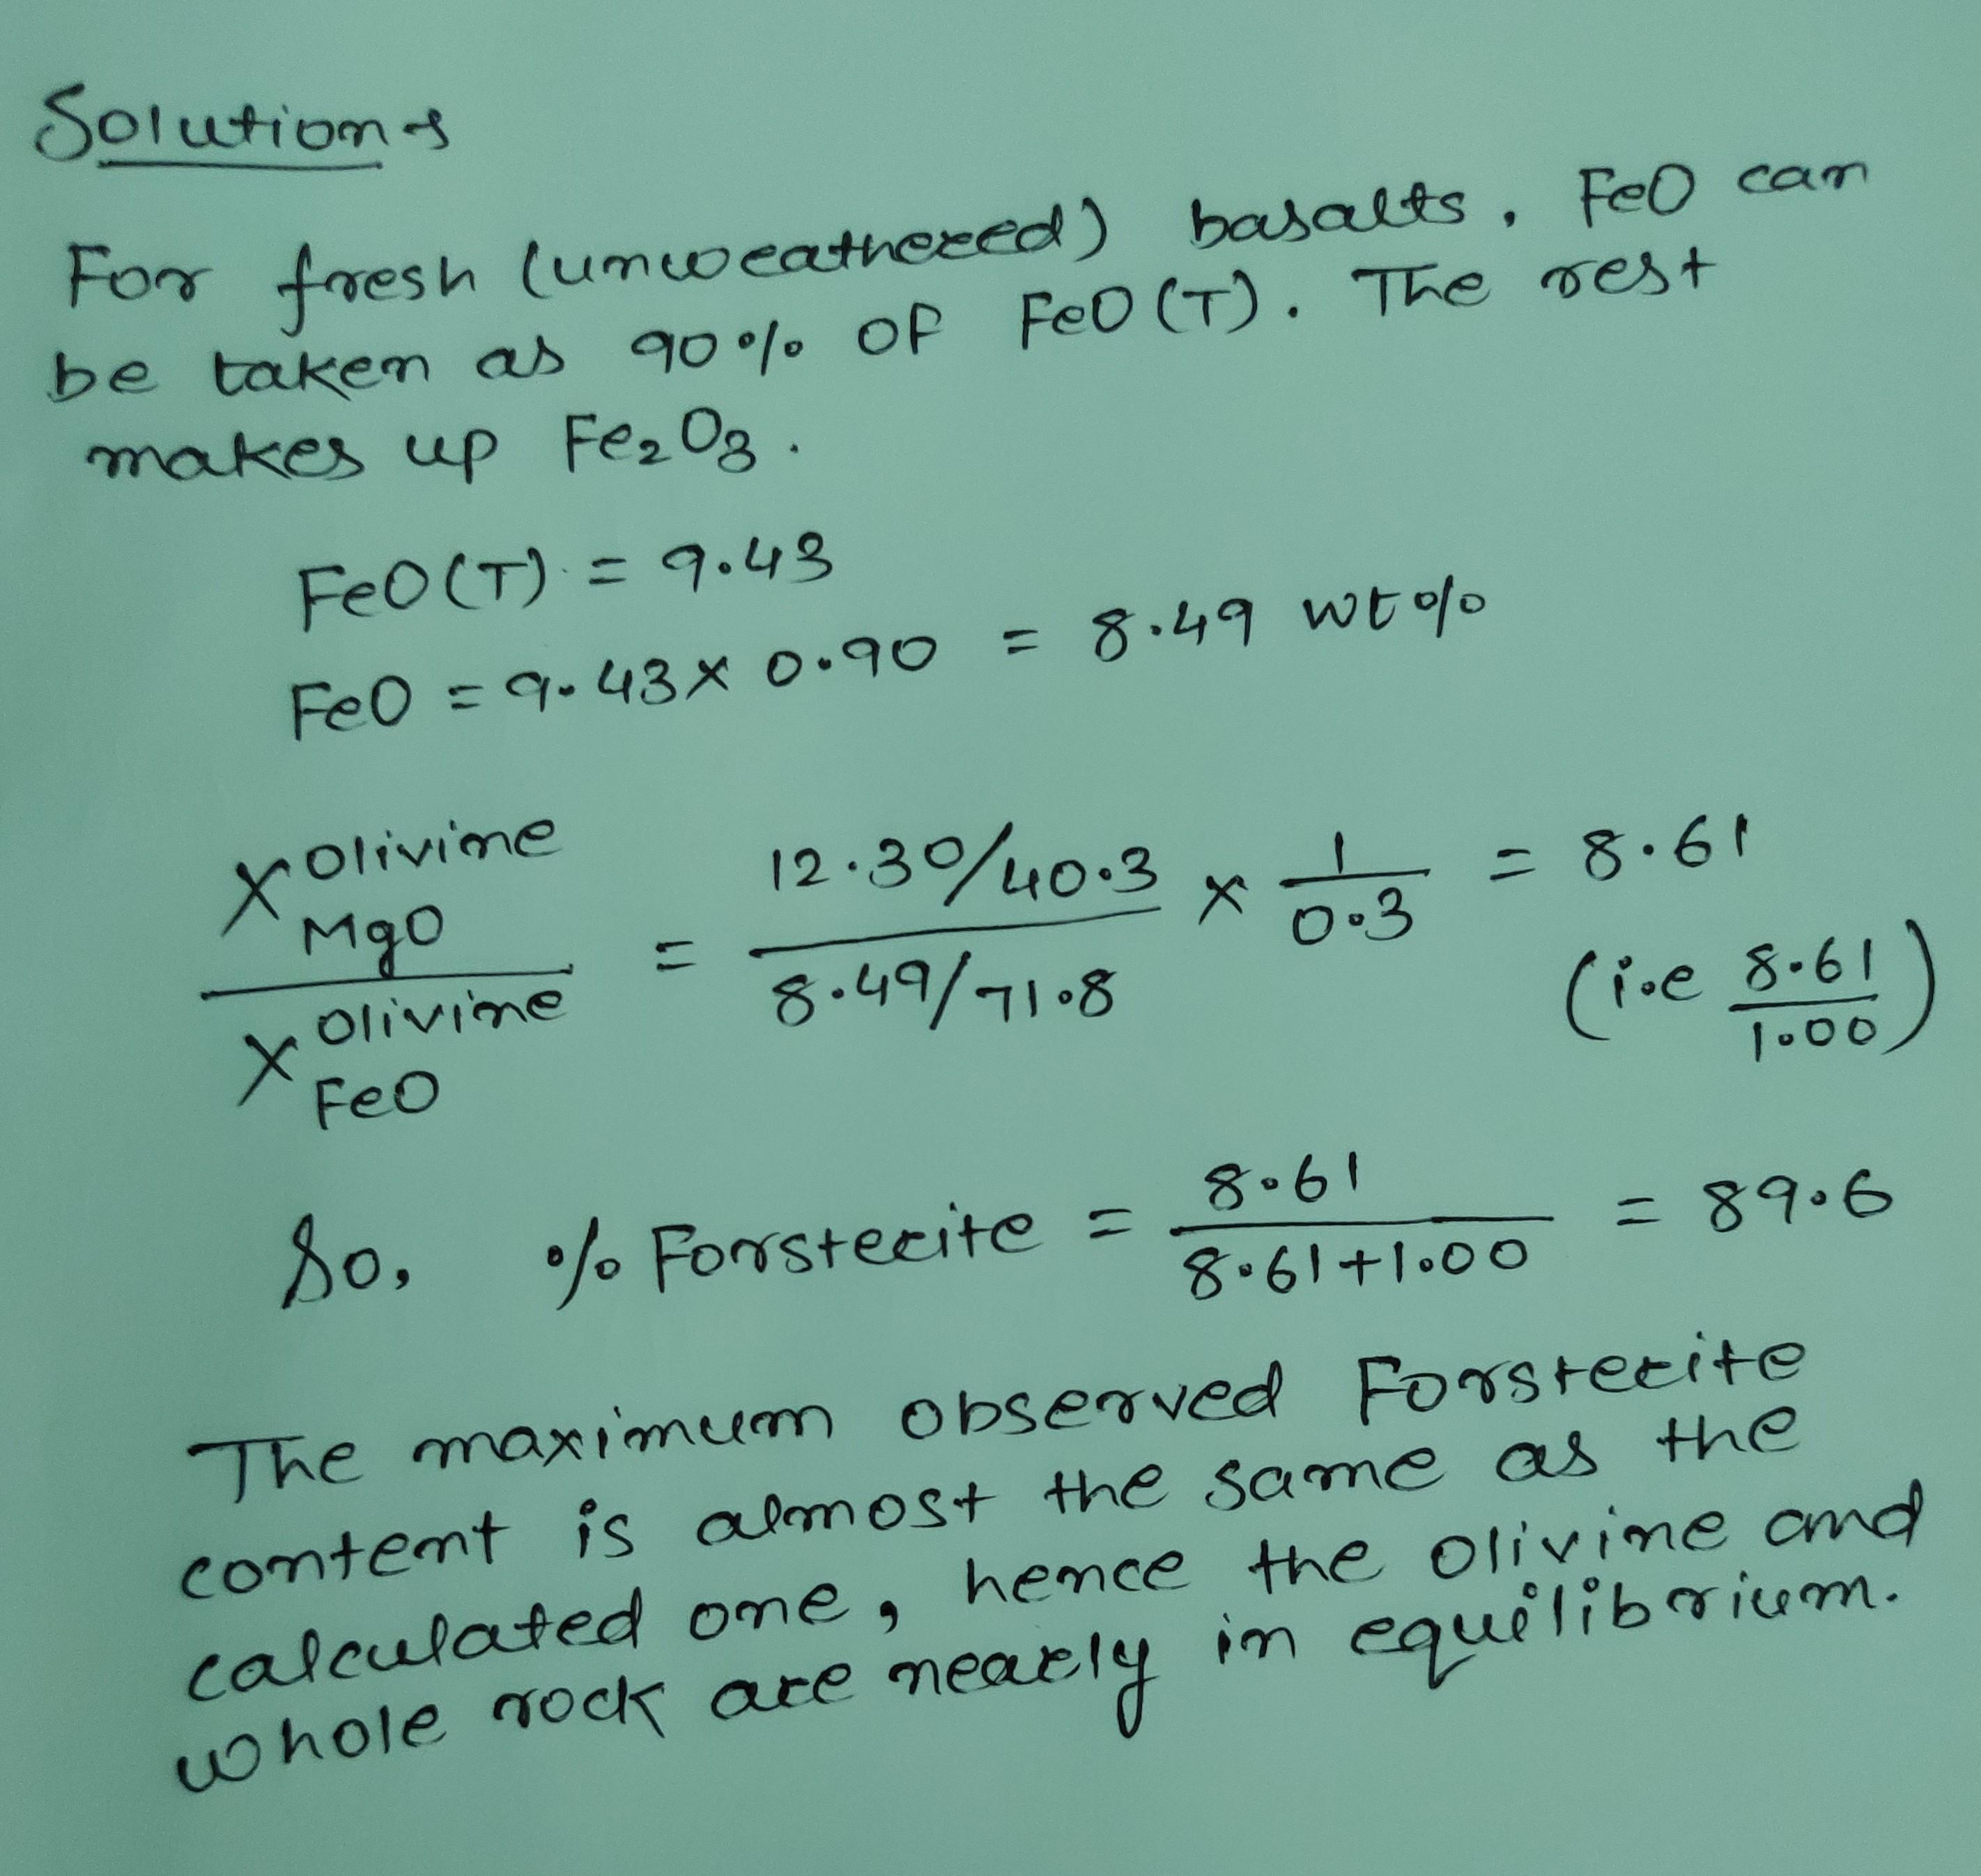 Solution :-
For fresh (unweathered) basalts, FeO can
be taken as 90% of FeO(T). The rest
makes up Fe₂O₃.
FeO(T) = 9.43
FeO = 9.43 x 0.90 = 8.49 wt%
X^Olivine_MgO / X^Olivine_FeO = (12.30/40.3) / (8.49/71.8) x 1/0.3 = 8.61
(i.e 8.61/1.00)
So, % Forsterite = 8.61 / (8.61+1.00) = 89.6
The maximum observed Forsterite
content is almost the same as the
calculated one, hence the olivine and
whole rock are nearly in equilibrium.